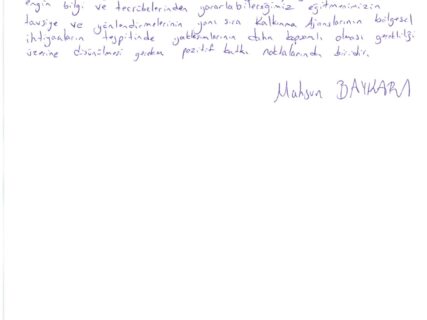 engin bilgi ve tecrübelerinden yararlabileceğimiz eğitmenimizin
tavsiye ve yönlendirmelerinin yanı sıra Kalkınma Ajanslarının bölgesel
ihtiyaçların tespitinde yaklaşımlarının daha kapsamlı olması gerektiği
üzerine düşünülmesi gereken pozitif katkı noktalarından biridir.
Mahsun BAYKARA